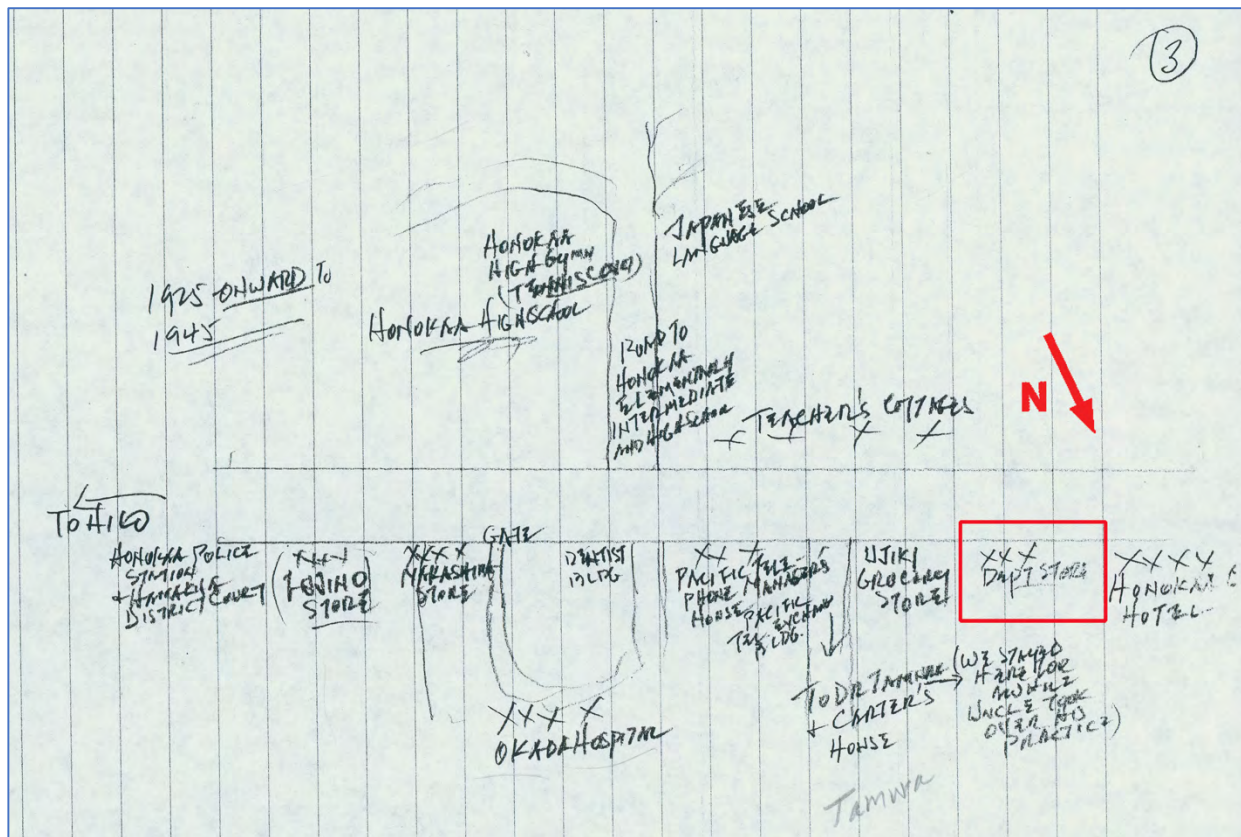 3
JAPANESE
LANGUAGE SCHOOL
HONOKAA
HIGH GYMN
(TENNIS COURT)
HONOKAA HIGHSCHOOL
1925 ONWARD TO
1945
ROAD TO
HONOKAA
ELEMENTARY
INTERMEDIATE
AND HIGHSCHOOL
N
TEACHER'S COTTAGES
X X X X
TO HILO
HONOKAA POLICE
STATION
+ HAMAKUA
DISTRICT COURT
XXX
STORE
XXXX
NAKASHIMA
STORE
GATE
DENTIST
BLDG
XX X
PACIFIC TELE-
PHONE MANAGER'S
HOUSE PACIFIC
TEL EXCHANG
BLDG.
UJIKI
GROCERY
STORE
XXX
DEPT STORE
XXXX
HONOKAA
HOTEL
XXX X
OKADA HOSPITAL
TO DR TAMURA
+ CARTER'S
HOUSE
(WE STAYED
HERE FOR
AWHILE
UNCLE TOOK
OVER HIS
PRACTICE)
Tamura